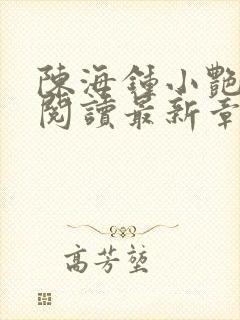 陳海鍾小艷
閱讀最新章
高芳堃